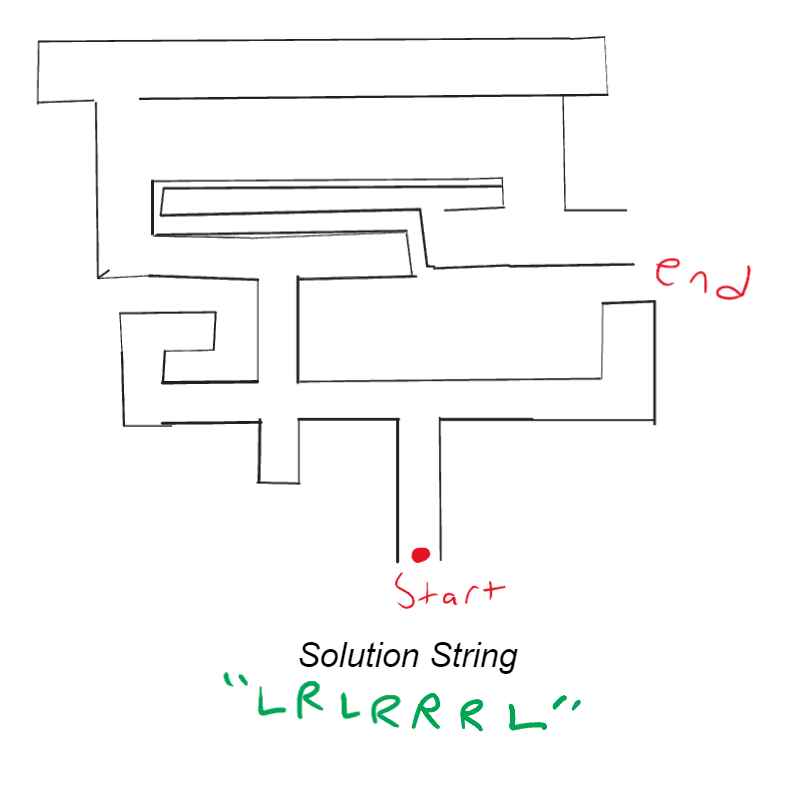 end
Start
Solution String
"LRLRRRL"